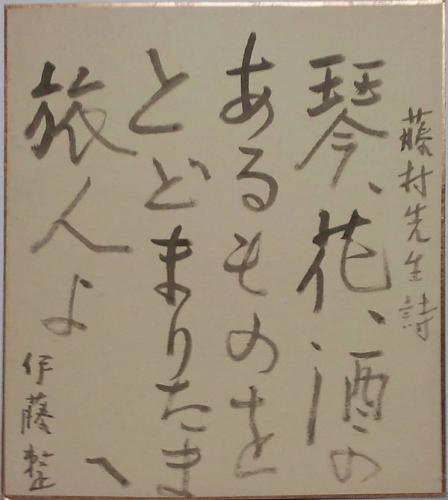 藤村先生詩
琴、花、酒の
あるものを
とどまりたまへ
旅人よ
伊藤整